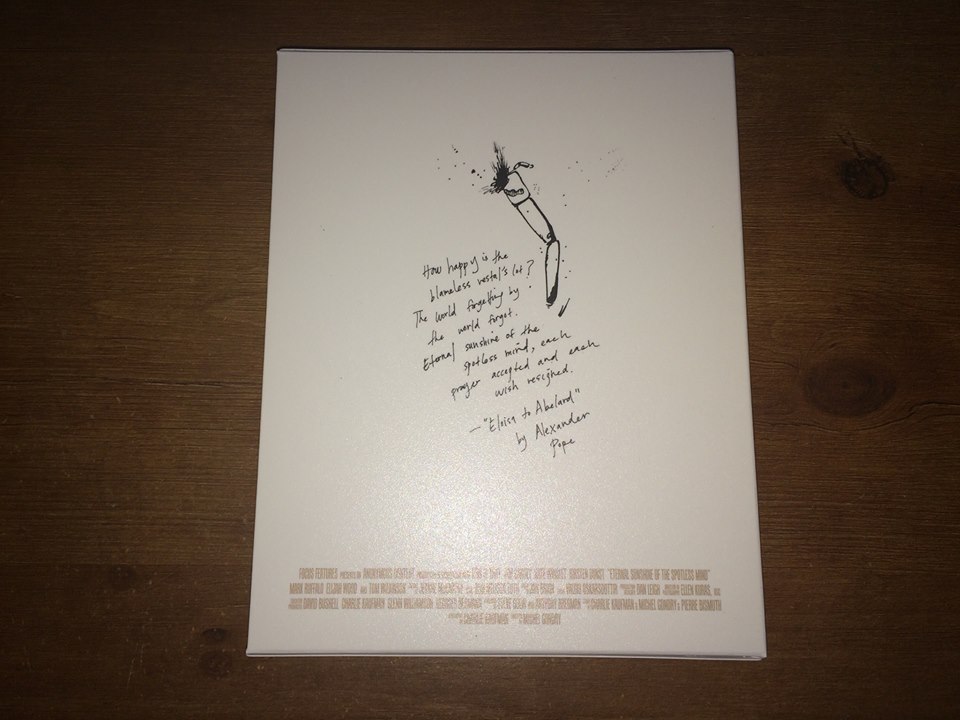 How happy is the
blameless vestal's lot?
The world forgetting by
the world forgot.
Eternal sunshine of the
spotless mind, each
prayer accepted and each
wish resigned.
— "Eloisa to Abelard"
by Alexander
Pope
FOCUS FEATURES PRESENTS AN ANONYMOUS CONTENT JIM CARREY KATE WINSLET KIRSTEN DUNST "ETERNAL SUNSHINE OF THE SPOTLESS MIND"
MARK RUFFALO ELIJAH WOOD AND TOM WILKINSON JON BRION VALDIS OSKARSDOTTIR DAN LEIGH ELLEN KURAS, ASC
DAVID BUSHELL CHARLIE KAUFMAN GLENN WILLIAMSON GEORGES BERMANN STEVE GOLIN AND ANTHONY BREGMAN CHARLIE KAUFMAN & MICHEL GONDRY & PIERRE BISMUTH
CHARLIE KAUFMAN MICHEL GONDRY